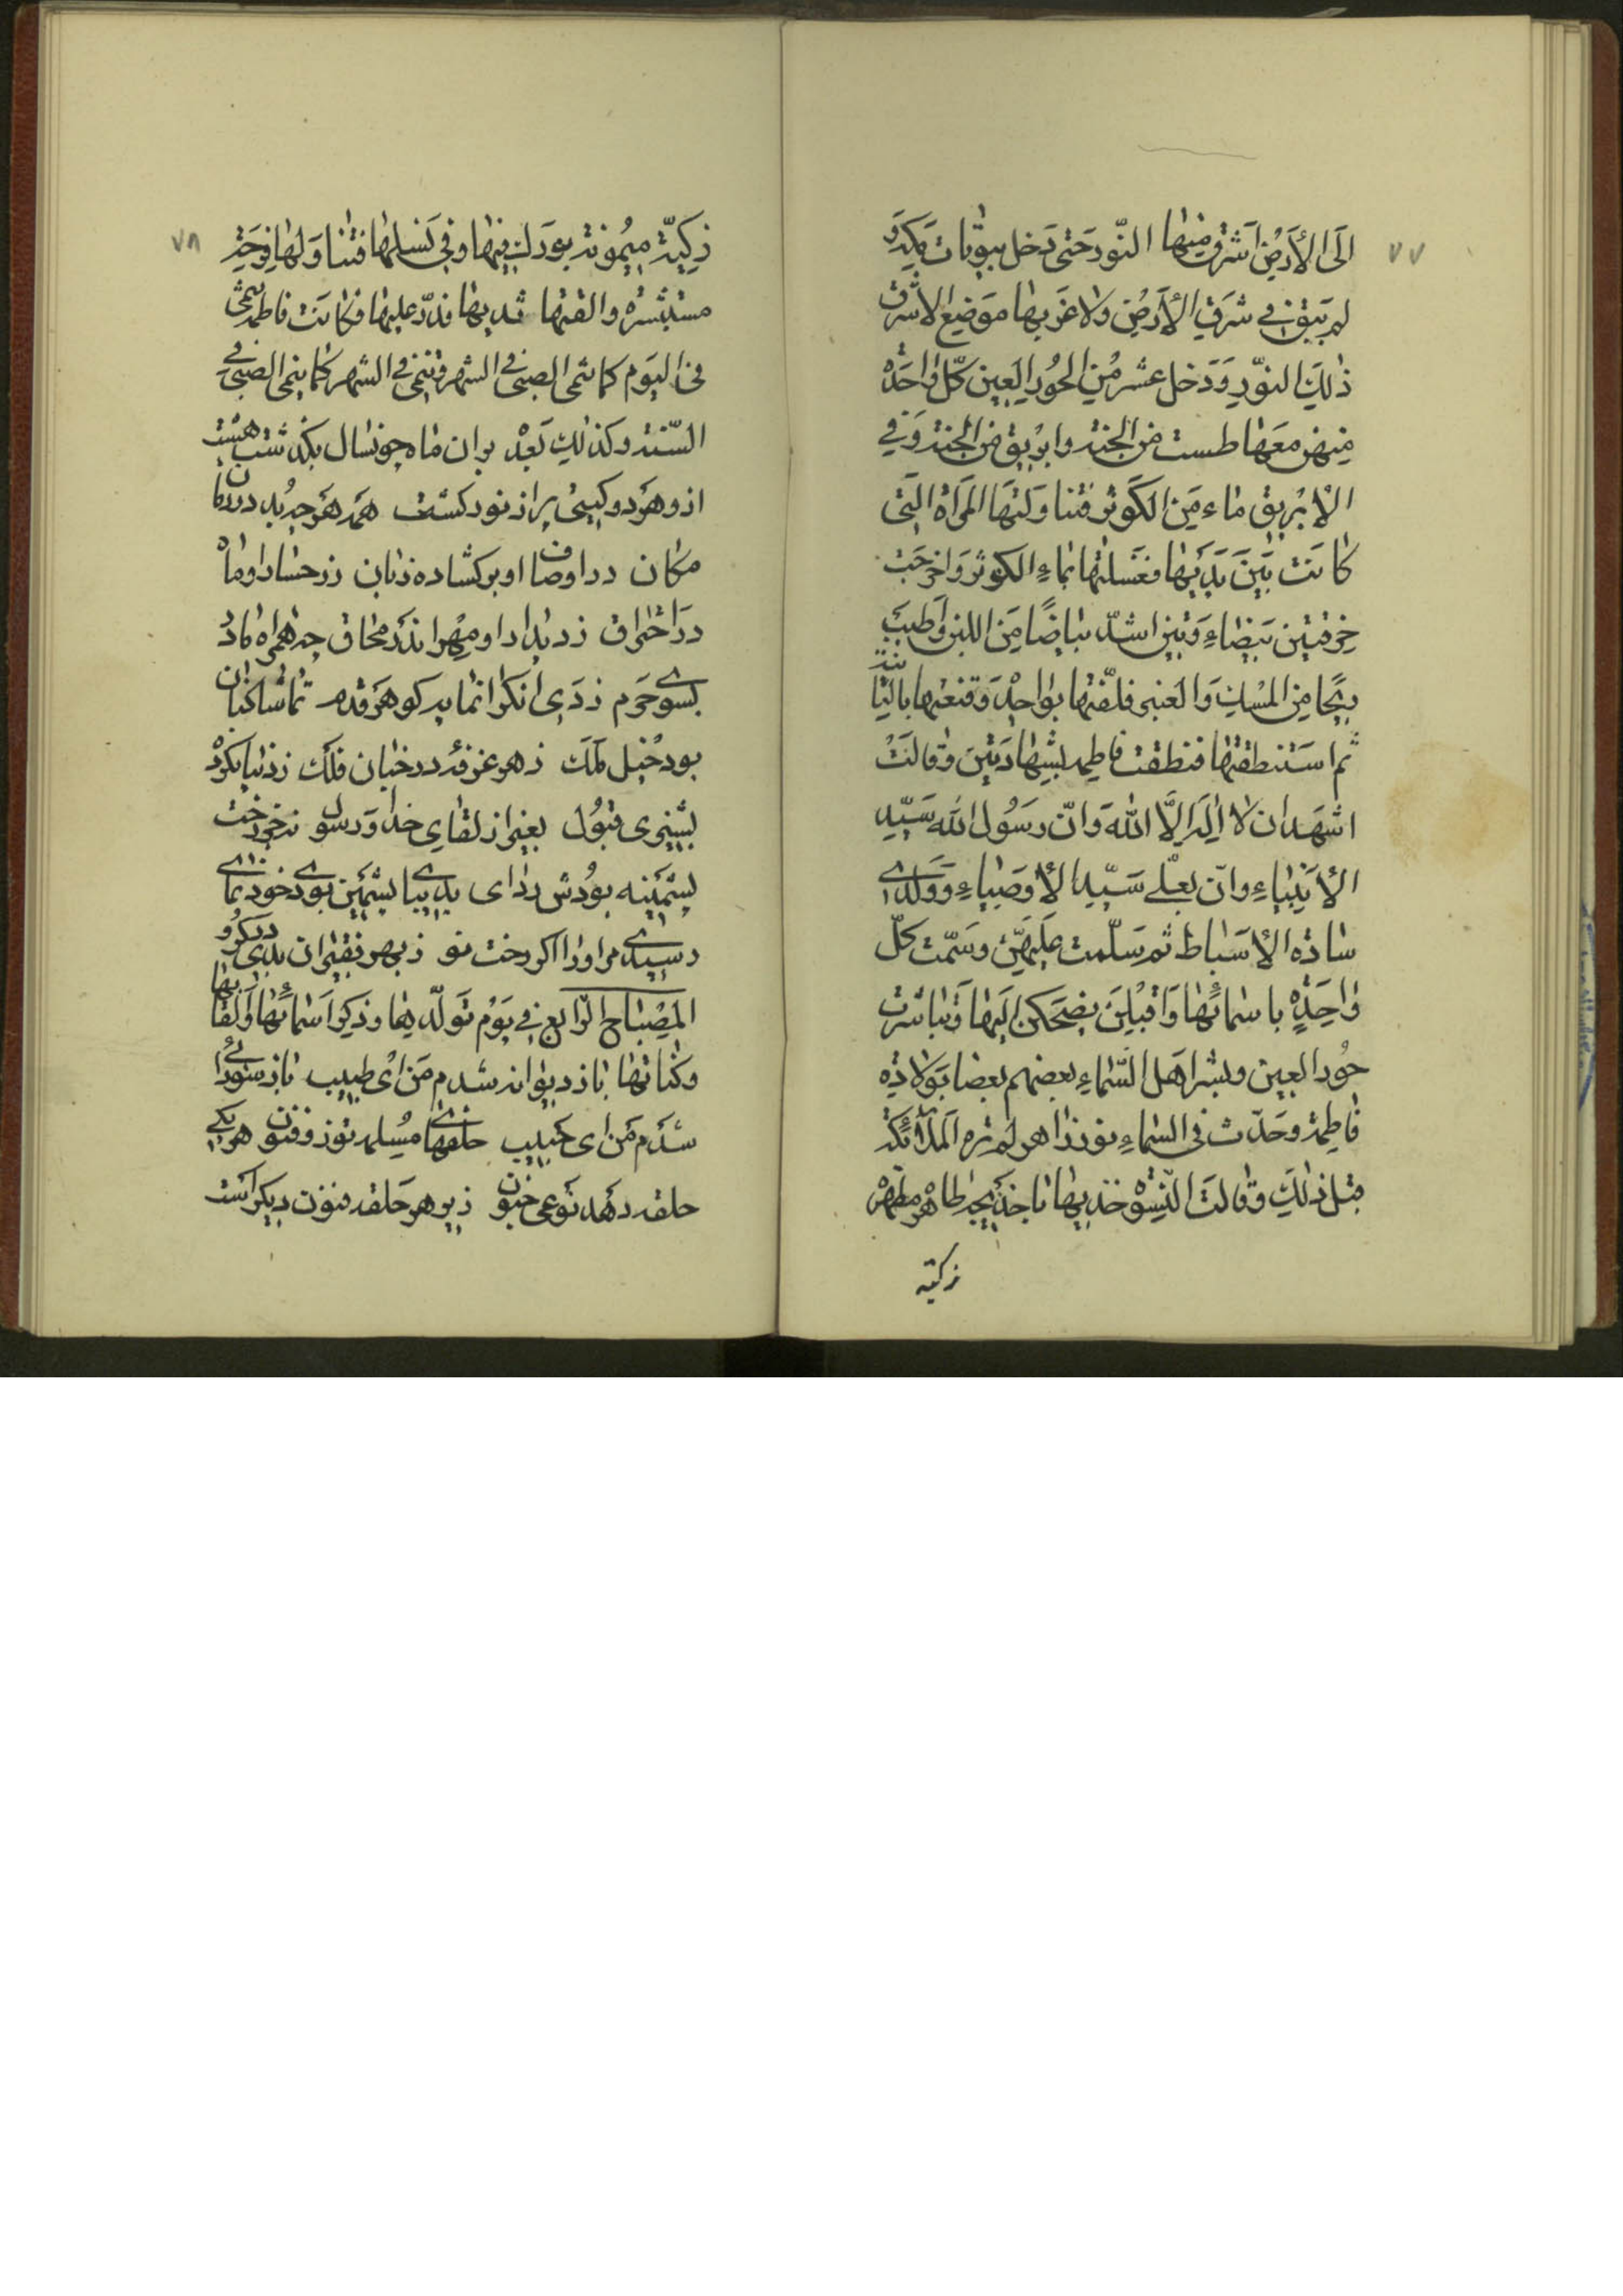 ٧٧
الَى الأَرْضِ اَشْرَقَ مِنْهَا النّور حَتى دَخل بيوتات مَكَّة وَ
لم يَبْقَ في شَرقِ الأَرضِ وَلا غَربها مَوضِع الا اشرَق
ذٰلِكَ النوّر وَدَخل عَشر مِن الحُور العين كلّ وٰاحِدَة
مِنهن مَعَها طست من الجنة وابريق من الجنة وَفي
الأِبْريق مٰاء مِن الكَوثر فتناوَلَتهَا المَرأة الّتى
كٰانَت بَيْنَ يَدَيهٰا فغَسلتهٰا بمٰاءِ الكوثر وَاخرَجَت
خِرقتين بَيضٰاوَتين اشدّ بَياضًا مِن اللبن وَاَطيَب
ريحًا مِن المسْك وَالعَنبر فلفّتهٰا بوٰاحِدَة وَقنعتهٰا بالثانية
ثم اسْتَنطقتهٰا فنَطقت فاطِمة بشهٰادَتين وَقالَت
اشهَد ان لا اِلَه اِلَّا اللهَ وَانّ رَسُول الله سَيّد
الأَنبيٰاءِ وانّ بَعْلي سَيّد الأَوصَيٰاءِ وَوَلدٰى
سٰادَة الأَسبَاط ثم سَلّمت عَلَيهنّ وسَمّت كلّ
وٰاحِدَةٍ باسمٰائهٰا وَاقبَلنَ يضحَكن اِلَيهٰا وَتباشَرت
حُور العين وبشر اهَل السّمٰاءِ بعضهم بعضا بوَلادَة
فٰاطِمَة وَحدث فى السّمٰاءِ نور زٰاهر لم تره المَلآئكة
قبل ذٰلكَ وَقالَت النّسْوة خذيهٰا يٰا خَديجَة طاهرة مطهّرة
زكيّة
٧٨
زكيّة مَيْمُونة بورَك فيهٰا وفي نَسْلهٰا فتنٰاوَلهٰا فرحَة
مستبشرة والقمتها ثديها فدَرّ عليهٰا فكانَت فاطمة تنمى
فى اليَوم كما تنمى الصبىّ فى الشهر وتنمى فى الشهر كما ينمى الصبىّ في
السّنة وكذلك بَعْد بران ماه چونسال بكذشت هشت
از وهر دو كيتى پر از نور كشت همه هر چه بُد در زمان
مكان در اوصاف او بر كشاده زبان زرخسار او ماه
در احتراق ز ديدار او مِهر اندر محاق چه همراه باد
بسوى حَرم زدى انكرانمايه كوهر قدم تماشاكنان
بود خيل ملَك ز هر غرفه در خيان فلك ز دنيا نكرد
بشيى قبُول بغير از لقاى خدا وَرسول نه خود رخت
پشمينه بودش رداى به ديبا پشمين بوى خود نماى
رسيدى مر او را اكر رخت نو ز بهر فقيران بدى در كرو
المِصْباح الرّابع في يَوْم تولّديها وذكر اسمائها وَالقابها
وكناتها باز ديوانه شدم من اى طبيب باز سودائى
شدم من اى حبيب حلقهاى مسلمه تو ذو فنون هر يكى
حلقه دهد نوعى جنون زير هر حلقه فنون ديكر است